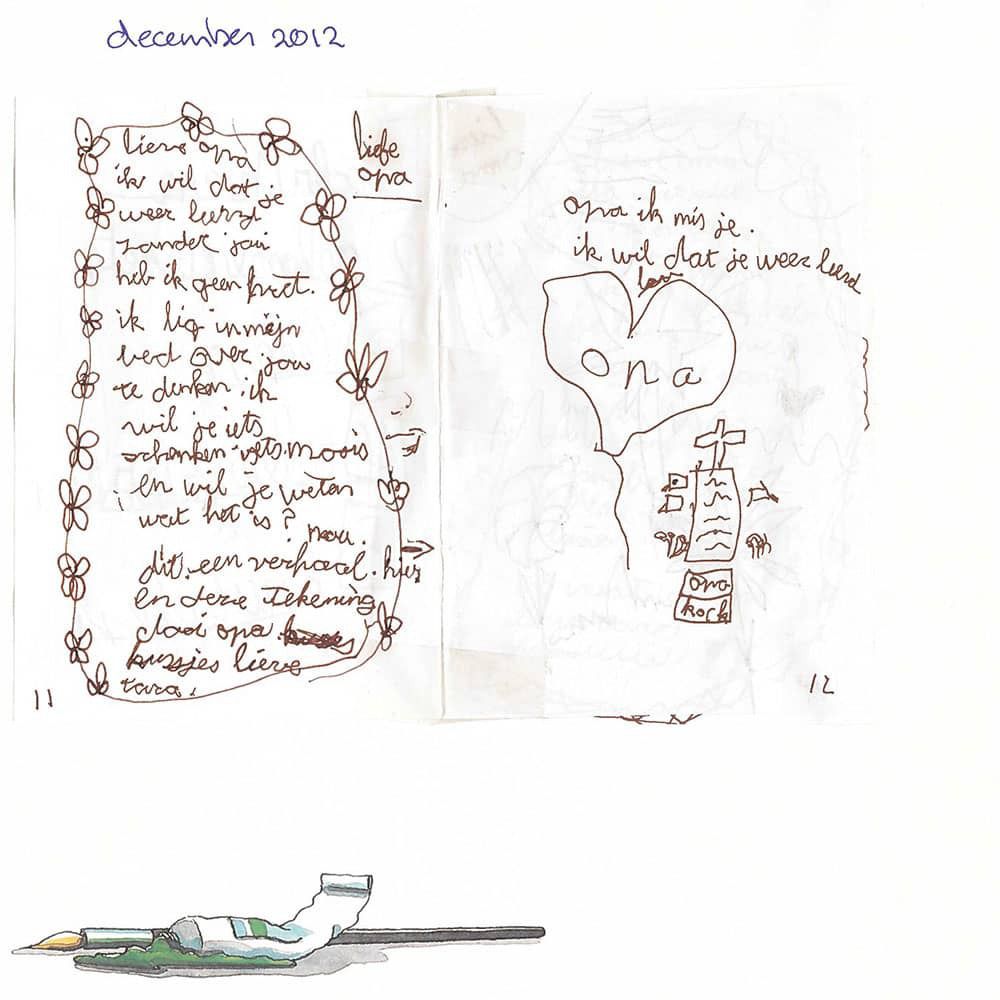 december 2012
lieve opa
ik wil dat je
weer
zonder jou
heb ik geen pret.
ik lig in mijn
bed over jou
te denken. ik
wil je iets
schenken iets moois
en wil je weten
wat het is?
nou.
dit. een verhaal. hier
en deze tekening
daai opa
kusjes lieve
tara.
11
liefe
opa
opa ik mis je.
ik wil dat je weer leevd
opa
opa
kock
12